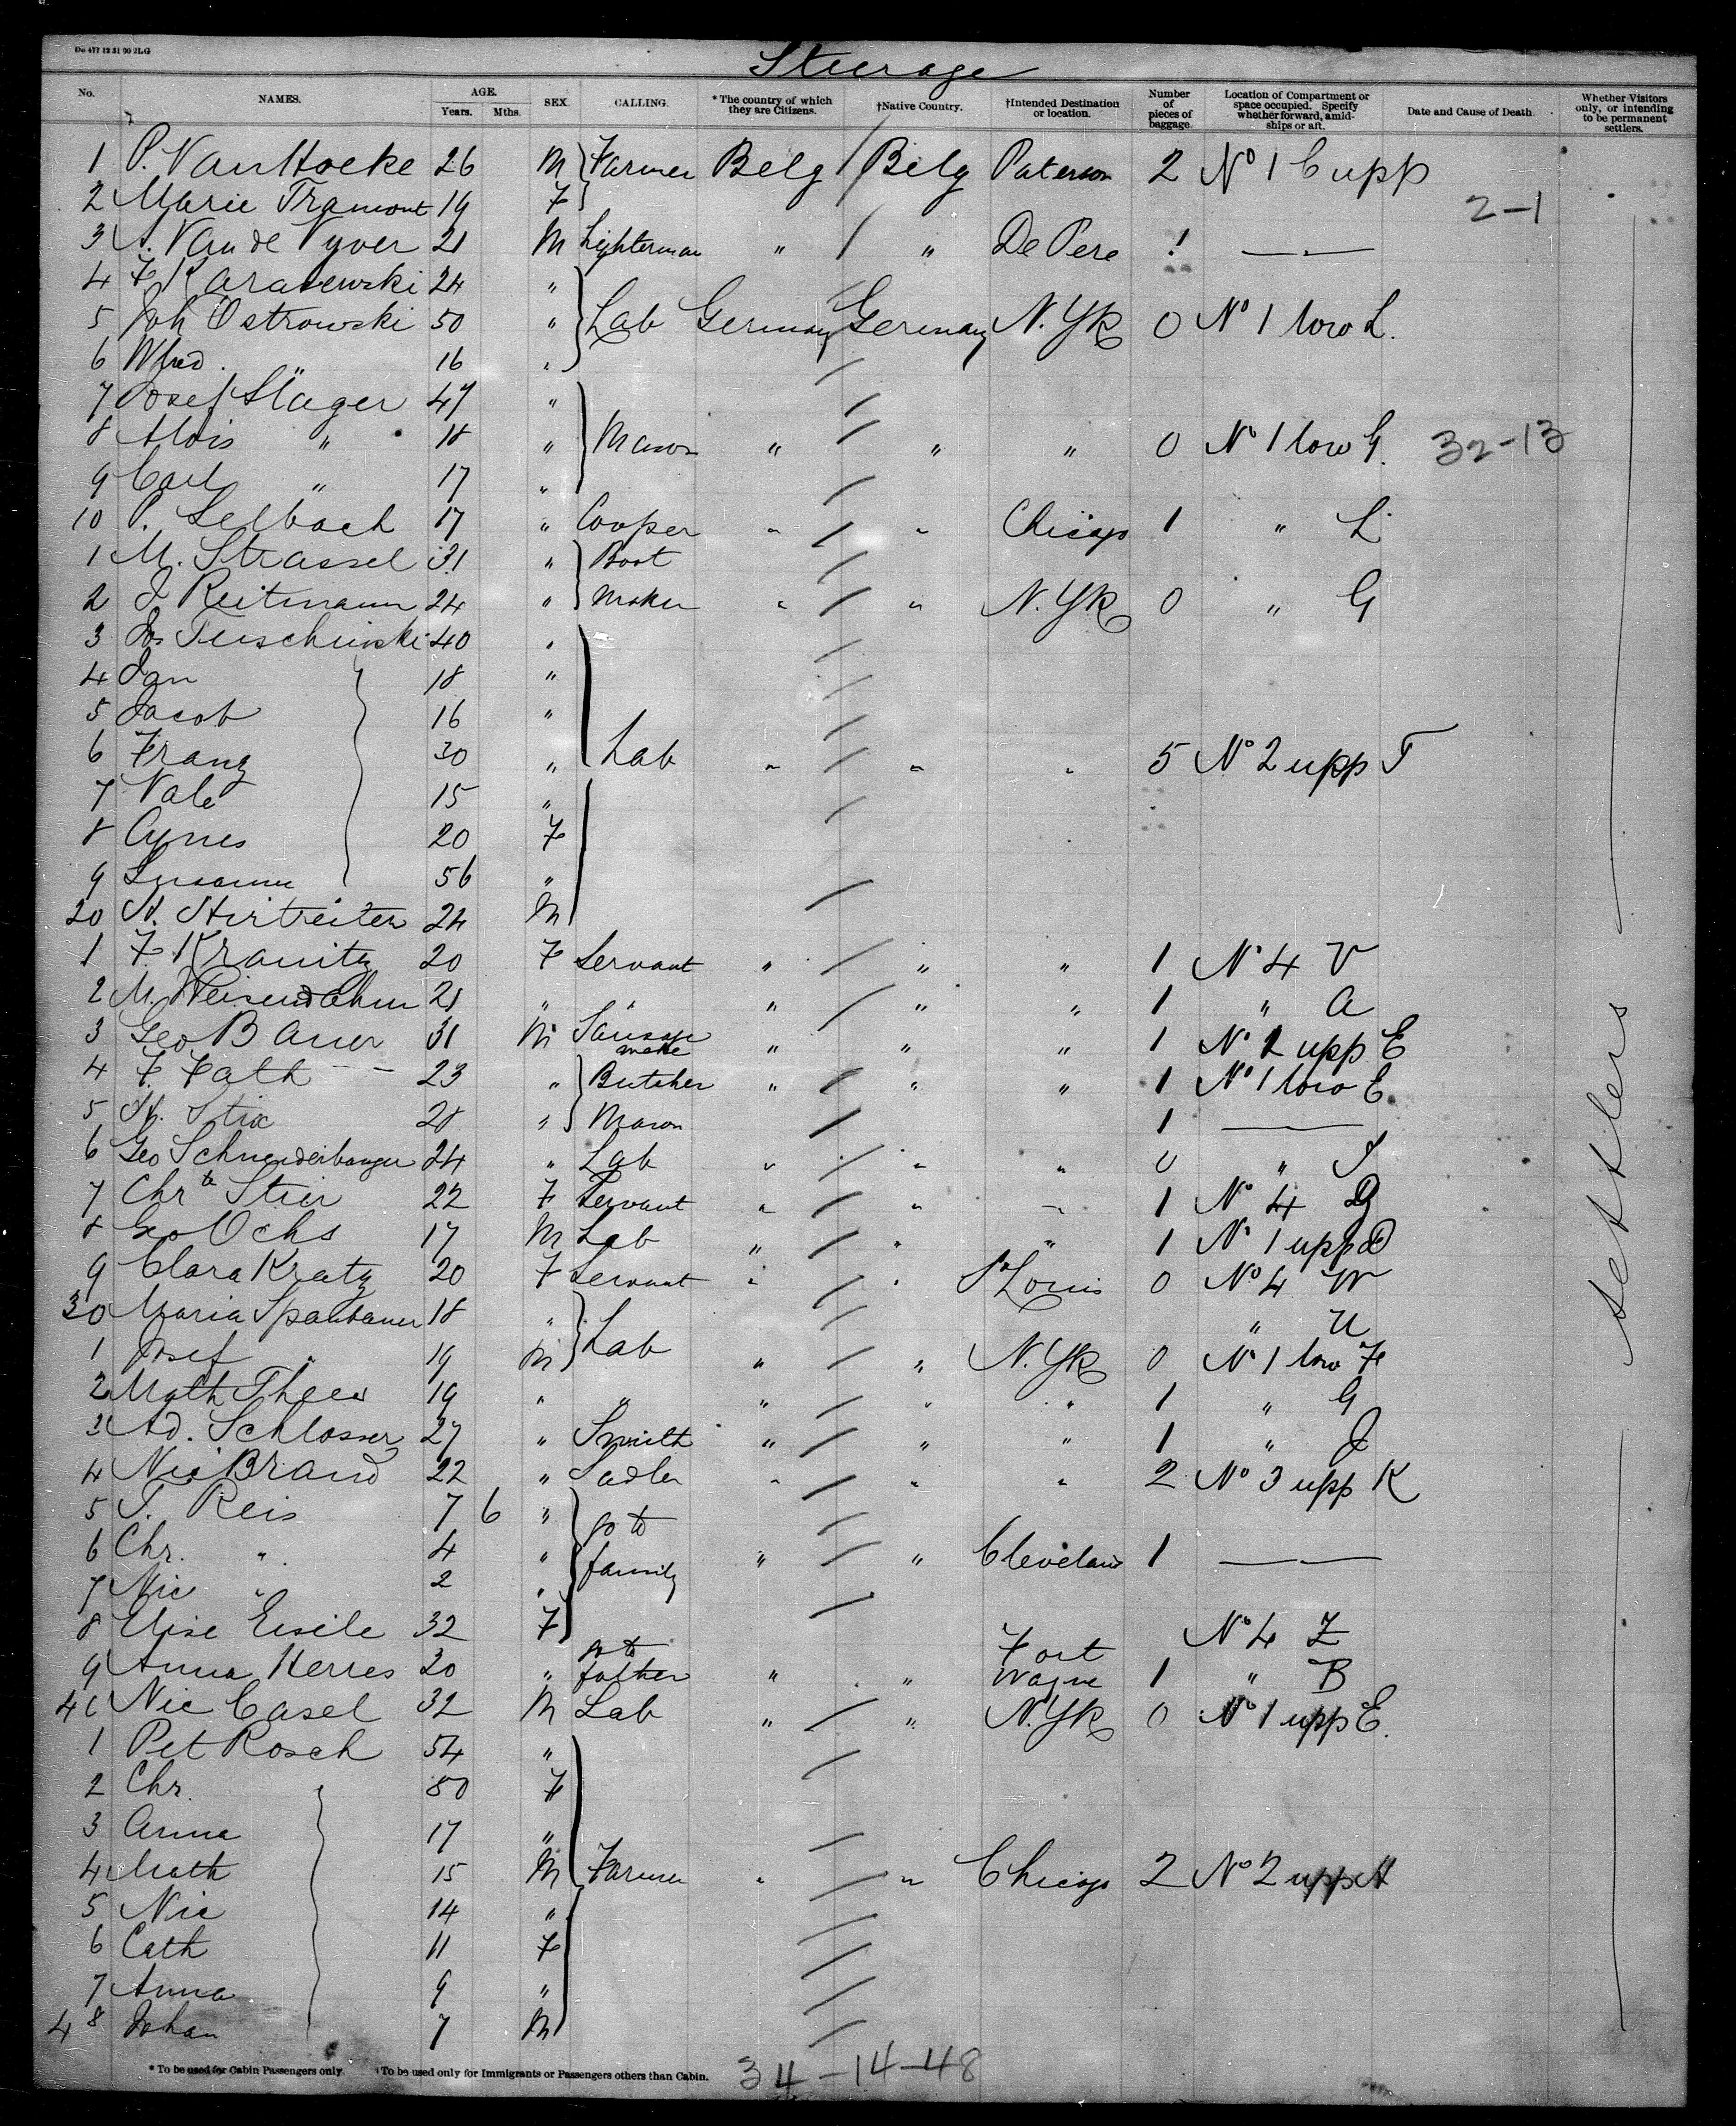 De 477 12 31 90 2LG
Steerage
No. NAMES. AGE. Years. Mths. SEX. CALLING. *The country of which they are Citizens. †Native Country. †Intended Destination or location. Number of pieces of baggage. Location of Compartment or space occupied. Specify whether forward, amidships or aft. Date and Cause of Death. Whether Visitors only, or intending to be permanent settlers.
1 P. Van Hoeke 26 M Farmer Belg / Belg Paterson 2 No 1 C upp
2 Marie Tramont 19 F 2-1
3 A. Van de Vyver 21 M Lighterman " / " De Pere 1 —
4 F Karasewski 24 "
5 Joh Ostrowski 50 " Lab Germany Germany N. Yk 0 No 1 low L.
6 Wlad. 16 "
7 Josef Stager 47 "
8 Alois " 18 " Mason " / " " 0 No 1 low G. 32-13
9 Carl " 17 "
10 P. Selbach 17 " Cooper " / " Chicago 1 " L
1 M. Strassel 31 " Boot
2 J Reitmann 24 " Maker " / " N. Yk 0 " G
3 Jos 40 "
4 Jan 18 "
5 Jacob 16 "
6 Franz 30 " Lab " / " " 5 No 2 upp T
7 Vale 15 "
8 Agnes 20 F
9 56 "
20 24 M
1 F Kranitz 20 F Servant " / " " 1 No 4 V
2 M. 21 " " " / " " 1 " A
3 Geo Bauer 31 M Sausage make " " " 1 No 2 upp E
4 F. Fath 23 " Butcher " / " " 1 No 1 low E.
5 Stix 28 " Mason / 1 —
6 Geo Schneiderbanger 24 " Lab " / " " 0 "
7 Chr Stier 22 F Servant " / " " 1 No 4 D
8 Geo Ochs 17 M Lab " / " " 1 No 1 upp D
9 Clara Kratz 20 F Servant " / " St Louis 0 No 4 W
30 Maria Spahbauer 18 " " U
1 Josef " 19 M Lab " / " N. Yk 0 No 1 low F
2 Math Thees 19 " " " / " " 1 " G
3 Ad. Schlosser 27 " Smith " / " " 1 " J
4 Nic Brand 22 " Sadler " / " " 2 No 3 upp K
5 J. Reis 7 6 " go to
6 Chr. " 4 " family " / " Cleveland 1 —
7 Nic " 2 "
8 Elise Eisele 32 F No 4 Z
9 Anna Herres 20 " go to father " " Fort Wayne 1 " B
40 Nic Casel 32 M Lab " / " N. Yk 0 No 1 upp E.
1 Pet Rosch 54 "
2 Chr. 50 F
3 Anna 17 "
4 Math 15 M Farmer " / " Chicago 2 No 2 upp H
5 Nic 14 "
6 Cath 11 F
7 Anna 9 "
48 Johan 7 M
settlers
* To be used for Cabin Passengers only. †To be used only for Immigrants or Passengers others than Cabin.
34-14-48